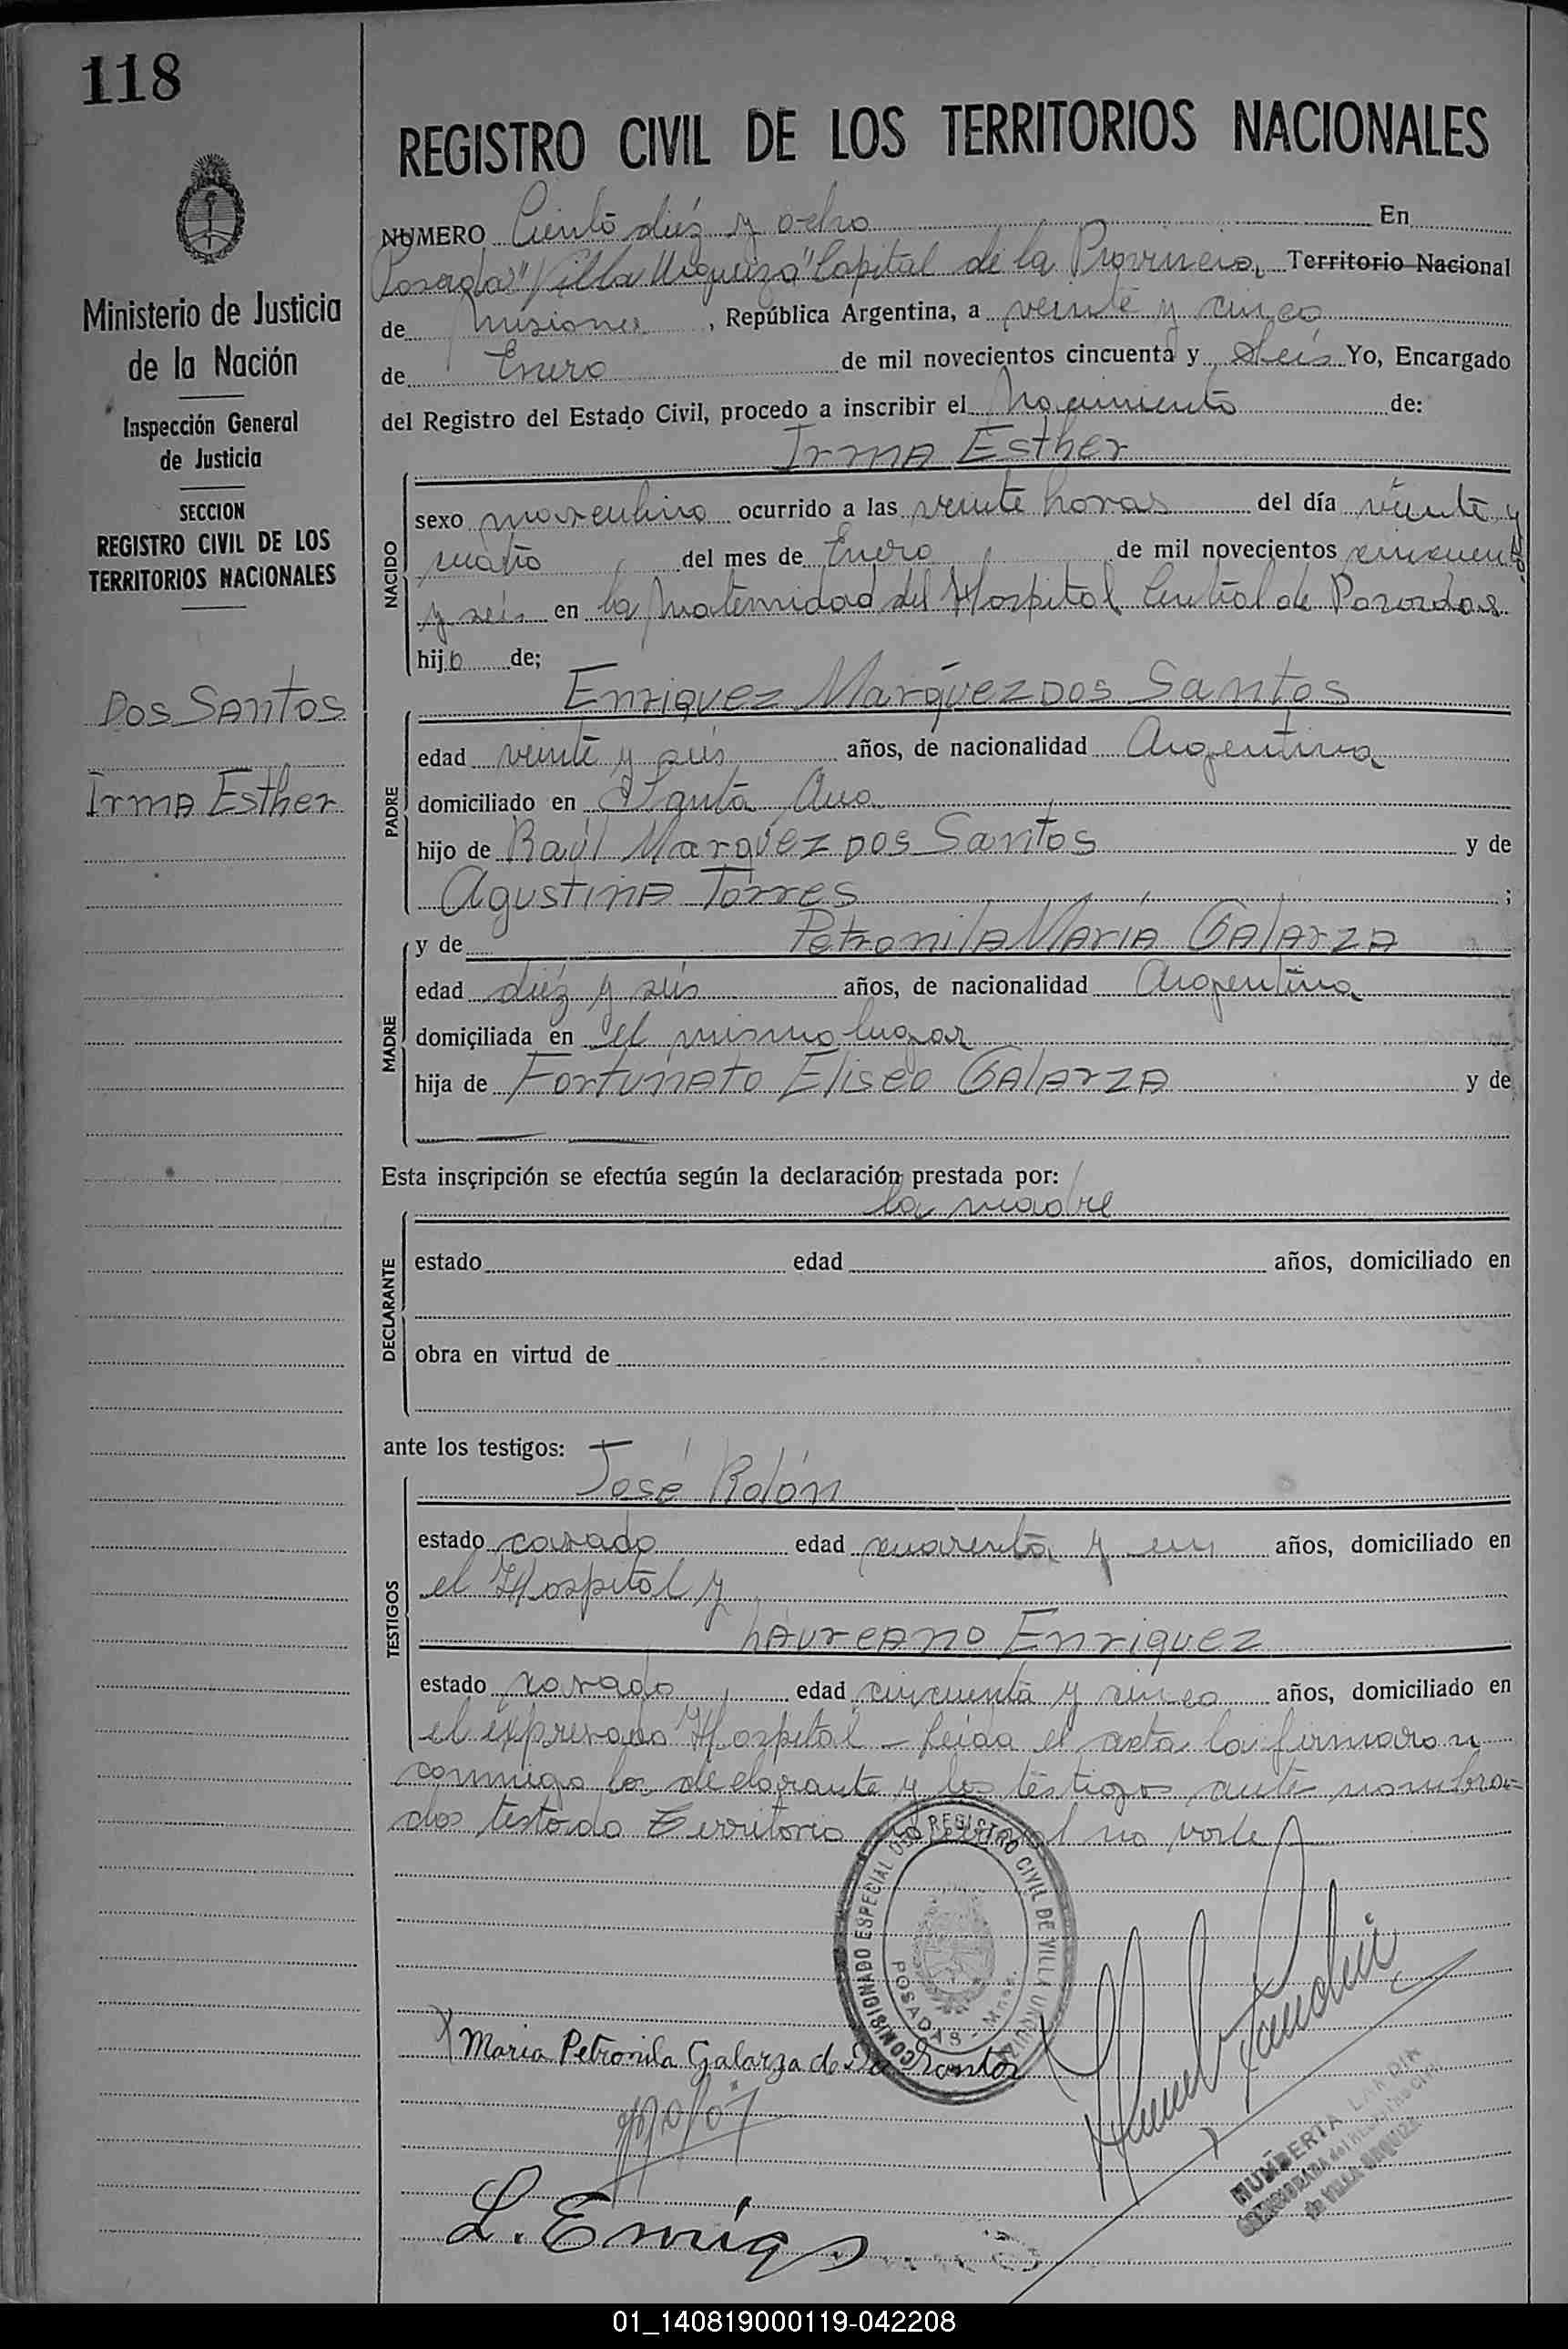 118
REGISTRO CIVIL DE LOS TERRITORIOS NACIONALES
Ministerio de Justicia
de la Nación
Inspección General
de Justicia
SECCION
REGISTRO CIVIL DE LOS
TERRITORIOS NACIONALES
Dos Santos
Irma Esther
NUMERO Ciento diéz y ocho En
Posadas "Villa Urquiza" Capital de la Provincia, Territorio Nacional
de Misiones, República Argentina, a veinte y cinco
de Enero de mil novecientos cincuenta y Seis Yo, Encargado
del Registro del Estado Civil, procedo a inscribir el Nacimiento de:
Irma Esther
NACIDO
sexo masculino ocurrido a las veinte horas del día veinte y
cuatro del mes de Enero de mil novecientos cincuenta
y seis en la Maternidad del Hospital Central de Posadas
hijo de;
Enriquez Marquez Dos Santos
PADRE
edad veinte y seis años, de nacionalidad Argentina
domiciliado en Santa Ana
hijo de Raúl Marquez Dos Santos y de
Agustina Torres ;
y de Petronila Maria Galarza
MADRE
edad diéz y seis años, de nacionalidad Argentina
domiciliada en el mismo lugar
hija de Fortunato Eliseo Galarza y de
Esta inscripción se efectúa según la declaración prestada por:
la madre
DECLARANTE
estado edad años, domiciliado en
obra en virtud de
ante los testigos:
José Rolón
TESTIGOS
estado casado edad cuarenta y un años, domiciliado en
el Hospital y
Laureano Enriquez
estado casado edad cincuenta y cinco años, domiciliado en
el expresado Hospital - Leida el acta la firmaron
conmigo la declarante y los testigos ante nombra-
dos testado Territorio Nacional no vale
COMISIONADO ESPECIAL USO REGISTRO CIVIL DE VILLA URQUIZA
POSADAS - Mnes.
Maria Petronila Galarza de Dos Santos
L. Enriq
HUMBERTA LANDIN
ENCARGADA del REGISTRO CIVIL
de VILLA URQUIZA
01_140819000119-042208